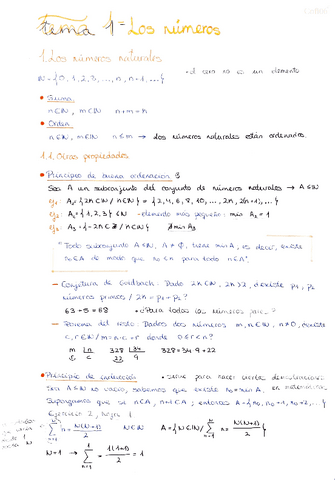 Tema 1= Los números
1. Los números naturales
N={0, 1, 2, 3, ..., n, n+1, ...} • el cero no es un elemento
• Suma
n∈N, m∈N n+m=
• Orden
n∈N, m∈N n≤m → los números naturales están ordenados.
1.1. Otras propiedades
• Principio de buena ordenación
Sea A un subconjunto del conjunto de números naturales → A⊆N
A₁={2n∈N / n∈N} = {2, 4, 6, 8, 10, ..., 2n, 2(n+1), ...}
A₂={1, 2, 3} ∈N - elemento más pequeño: min A₂ = 1
A₃={-2n∈Z / n∈N} ∄min A₃
"Todo subconjunto A⊆N, A≠∅, tiene min A, es decir, existe
n₀∈A de modo que n₀≤n para todo n∈A".
- Conjetura de Goldbach: Dado 2n∈N, 2n>2, ¿existe p₁, p₂
números primos / 2n = p₁+p₂?
63+5=68 ¿Para todos los números
- Teorema del resto. Dados dos números m, n∈N, n≠0, existe
c, r∈N / m=n·c+r donde 0≤r<n
m |n 328 |34 328=34·9+22
r c 22 9
• Principio de inducción • sirve para hacer ciertas demostraciones
Sea A⊆N no vacío, sabemos que existe n₀=min A. en matemáticas
Supongamos que si n∈A, n+1∈A; entonces A={n₀, n₀+1, n₀+2, ...}
Ejercicio 2, hoja 1
∑ n = N(N+1)/2 N∈N A={N∈N / ∑ n = N(N+1)/2}
N=1 → ∑ = 1(1+1)/2 = 1